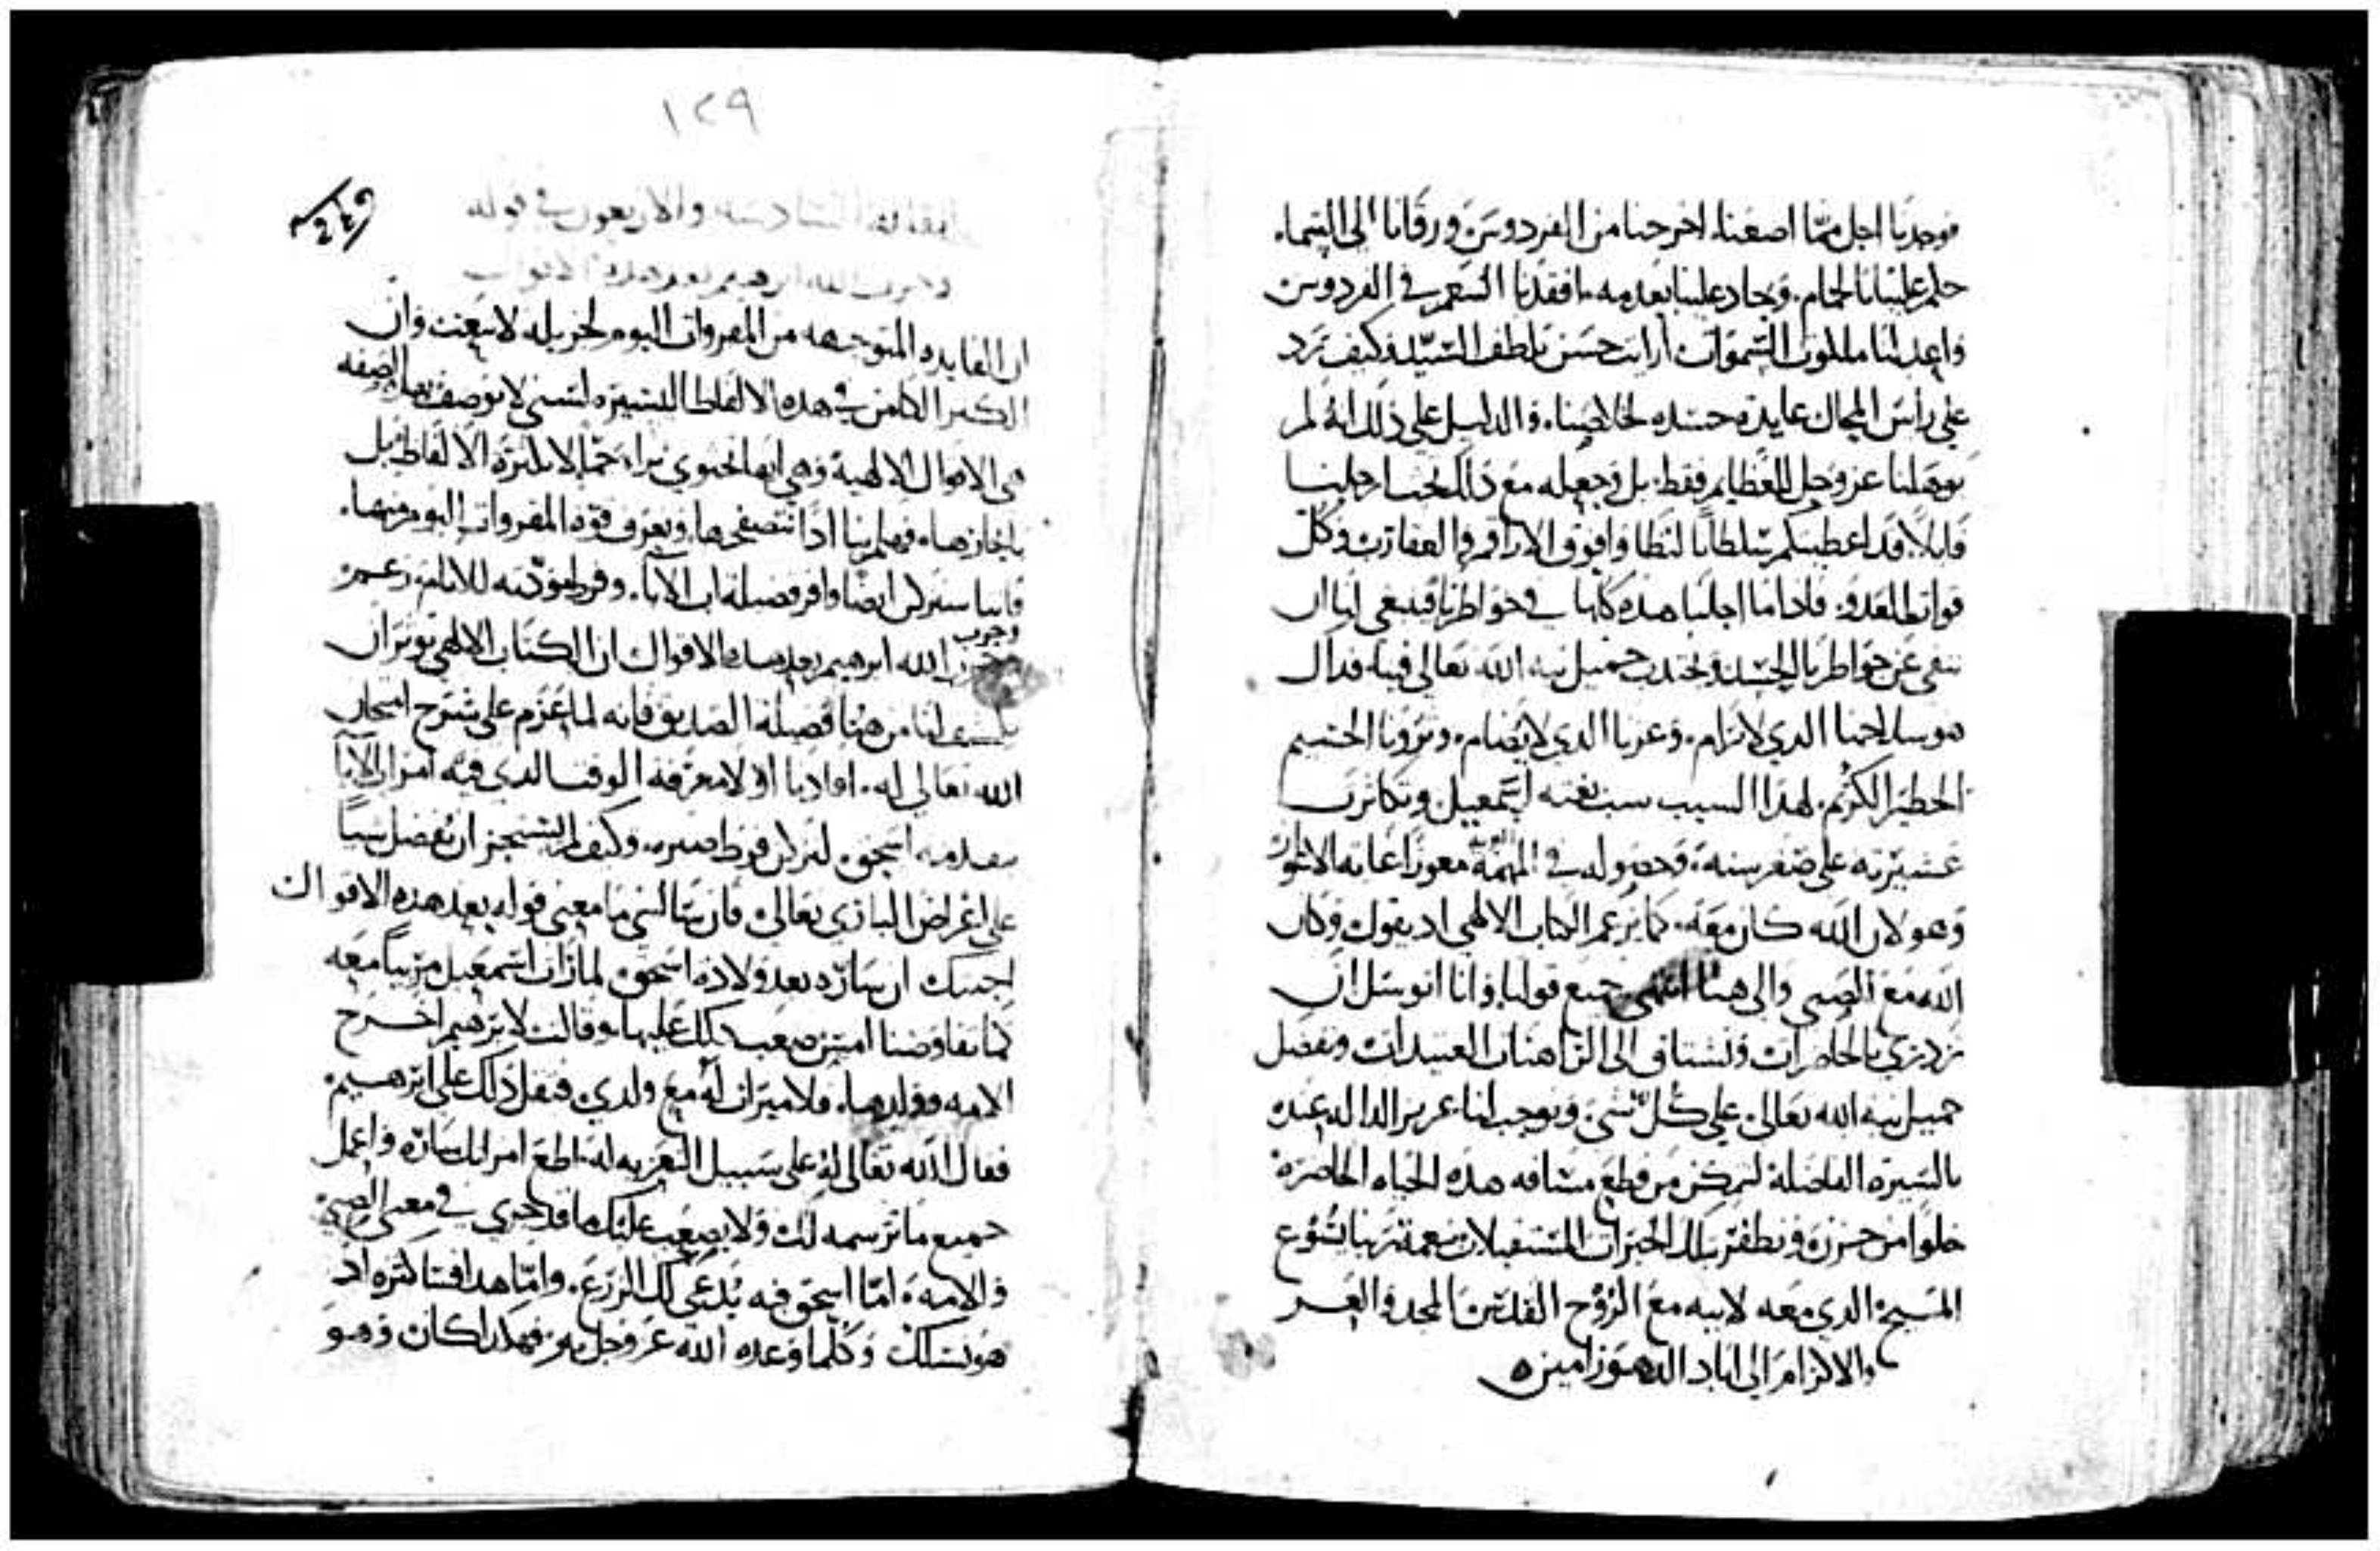 فوجدنا اجل مما اضعنا. اخرجنا من الفردوس ورقانا الى السماء.
حكم علينا بالحمام. وجاد علينا بعدمه. افقدنا النعم في الفردوس
واعد لنا ملكوت السموات أرايت حسن تلطف السيد وكيف رد
على راس المحال عايده حسده لخلاصنا. والدليل على ذلك انه لم
يوهلنا عز وجل للعظايم فقط. بل وجعله مع ذلك تحت ارجلنا
قايلا. قد اعطيتكم سلطانا لتطاوا فوق الاراقم والعقارب وكل
قوات العدو. فاذا ما اجلنا هذه كلها في خواطرنا فينبغي لنا ان
ننفي عن خواطرنا الحسد ونجتذب جميل نية الله تعالى فينا فذاك
هو سلاحنا الذي لا يرام. وعزنا الذي لا يضام. وثروتنا الجسيم
الخطير الكريم. لهذا السبب سبت نعته اسمعيل وتكاثرت
عشيرته على صغر سنه. وحصوله في المهمة معوزا غاية الاعواز
وهو لان الله كان معه. كما يزعم الكتاب الالهي اذ يقول وكان
الله مع الصبي والى هنا انتهى جميع قولنا. وانا اتوسل ان
نزدري بالحاضرات ونشتاق الى الراهنات العتيدات ونفضل
جميل نية الله تعالى على كل شي. ونوجب لنا عزيز الدالة عنده
بالسيرة الفاضلة لنمكن من قطع مسافه هذه الحياه الحاضرة
خلوا من حزن. ونظفر بتلك الخيرات المستقبلات بنعمة ربنا يسوع
المسيح الذي معه لابيه مع الروح القدس المجد والعز
والاكرام الى اباد الدهور امين ه
١٢٩
٢٤٩
المقالة السادسه والاربعون في قوله
وجرب الله ابرهيم بعد هذه الاقوال
ان الفايده المتوجهه من المقروات اليوم لجزيله لا تنعت وان
الكنز الكامن في هذه الالفاظ اليسيره لسني لا يوصف بهذه الصفه
هي الاقوال الالهية وهي انها تحتوي ثراء جما لا بكثرة الالفاظ بل
بايجازها. فهلم بنا اذا نتصفحها. ونعرف قوة المقروات اليوم منها.
فاننا سندرك ايضا وافر فضيلة اب الاباء. وفرط مودته للاله. زعم
وجرب الله ابرهيم بعد هذه الاقوال ان الكتاب الالهي يوثر ان
يكشف لنا من هنا فضيلة الصديق فانه لما عزم على شرح امتحان
الله تعالى له. افادنا اولا معرفة الوقت الذي فيه امر ابي الابا
بتقدمه اسحق. لندرك فرط صبره. وكيف لم يستجز ان يفضل شيا
على اغراض الباري تعالى. فان سالتني ما معنى قوله بعد هذه الاقوال
اجبتك ان ساره بعد ولادة اسحق لما رات اسمعيل مربيا معه
كما تفاوضنا امس صعب ذلك عليها. وقالت لابرهيم اخرج
الامه وولدها. فلا ميراث له مع ولدي. فثقل ذلك على ابرهيم.
فقال الله تعالى له على سبيل التعزيه له اطع امراتك ساره واعمل
جميع ما ترسمه لك ولا يصعب عليك ما قد جرى في معنى الصبي
والامه. اما اسحق فيه يدعى لك الزرع. واما هذا فساكثره اذ
هو نسلك وكلما وعده الله عز وجل به. فهكذا كان وهو